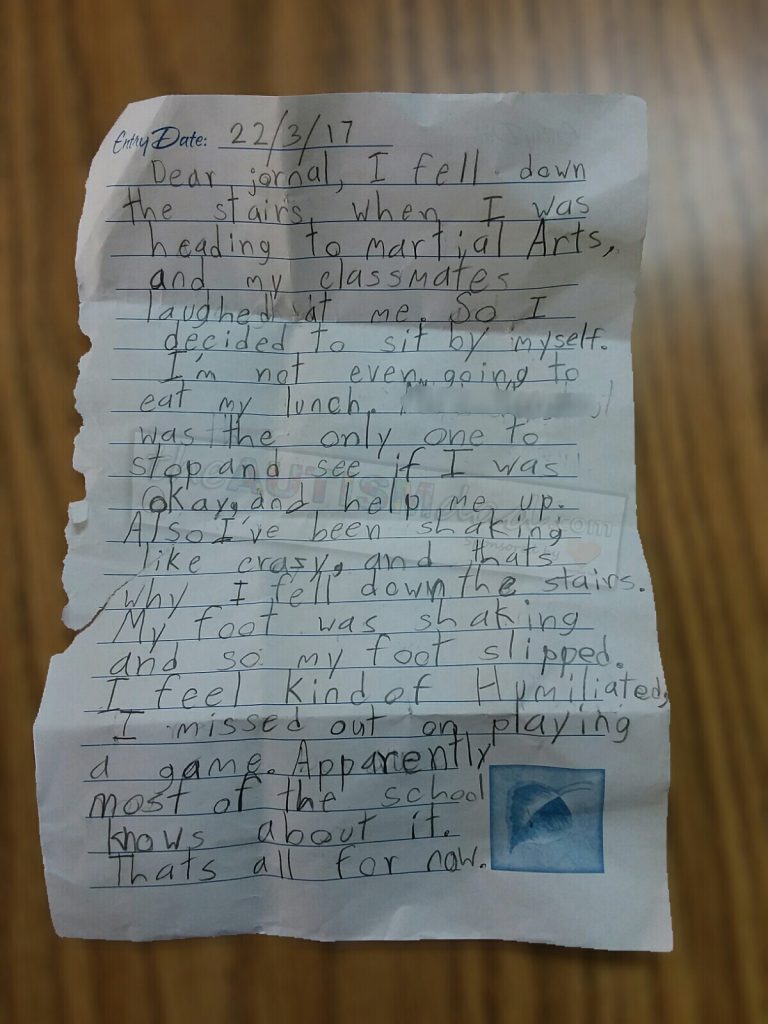 Entry Date: 22/3/17
Dear jornal, I fell down
the stairs, when I was
heading to martial Arts,
and my classmates
laughed at me. So I
decided to sit by myself.
I'm not even going to
eat my lunch.
was the only one to
stop and see if I was
okay, and help me up.
Also I've been shaking
like crasy, and thats
why I fell down the stairs.
My foot was shaking
and so my foot slipped.
I feel kind of Humiliated,
I missed out on playing
a game. Apparently
most of the school
knows about it.
Thats all for now.
theAUTISMdad.com
Sponsored by